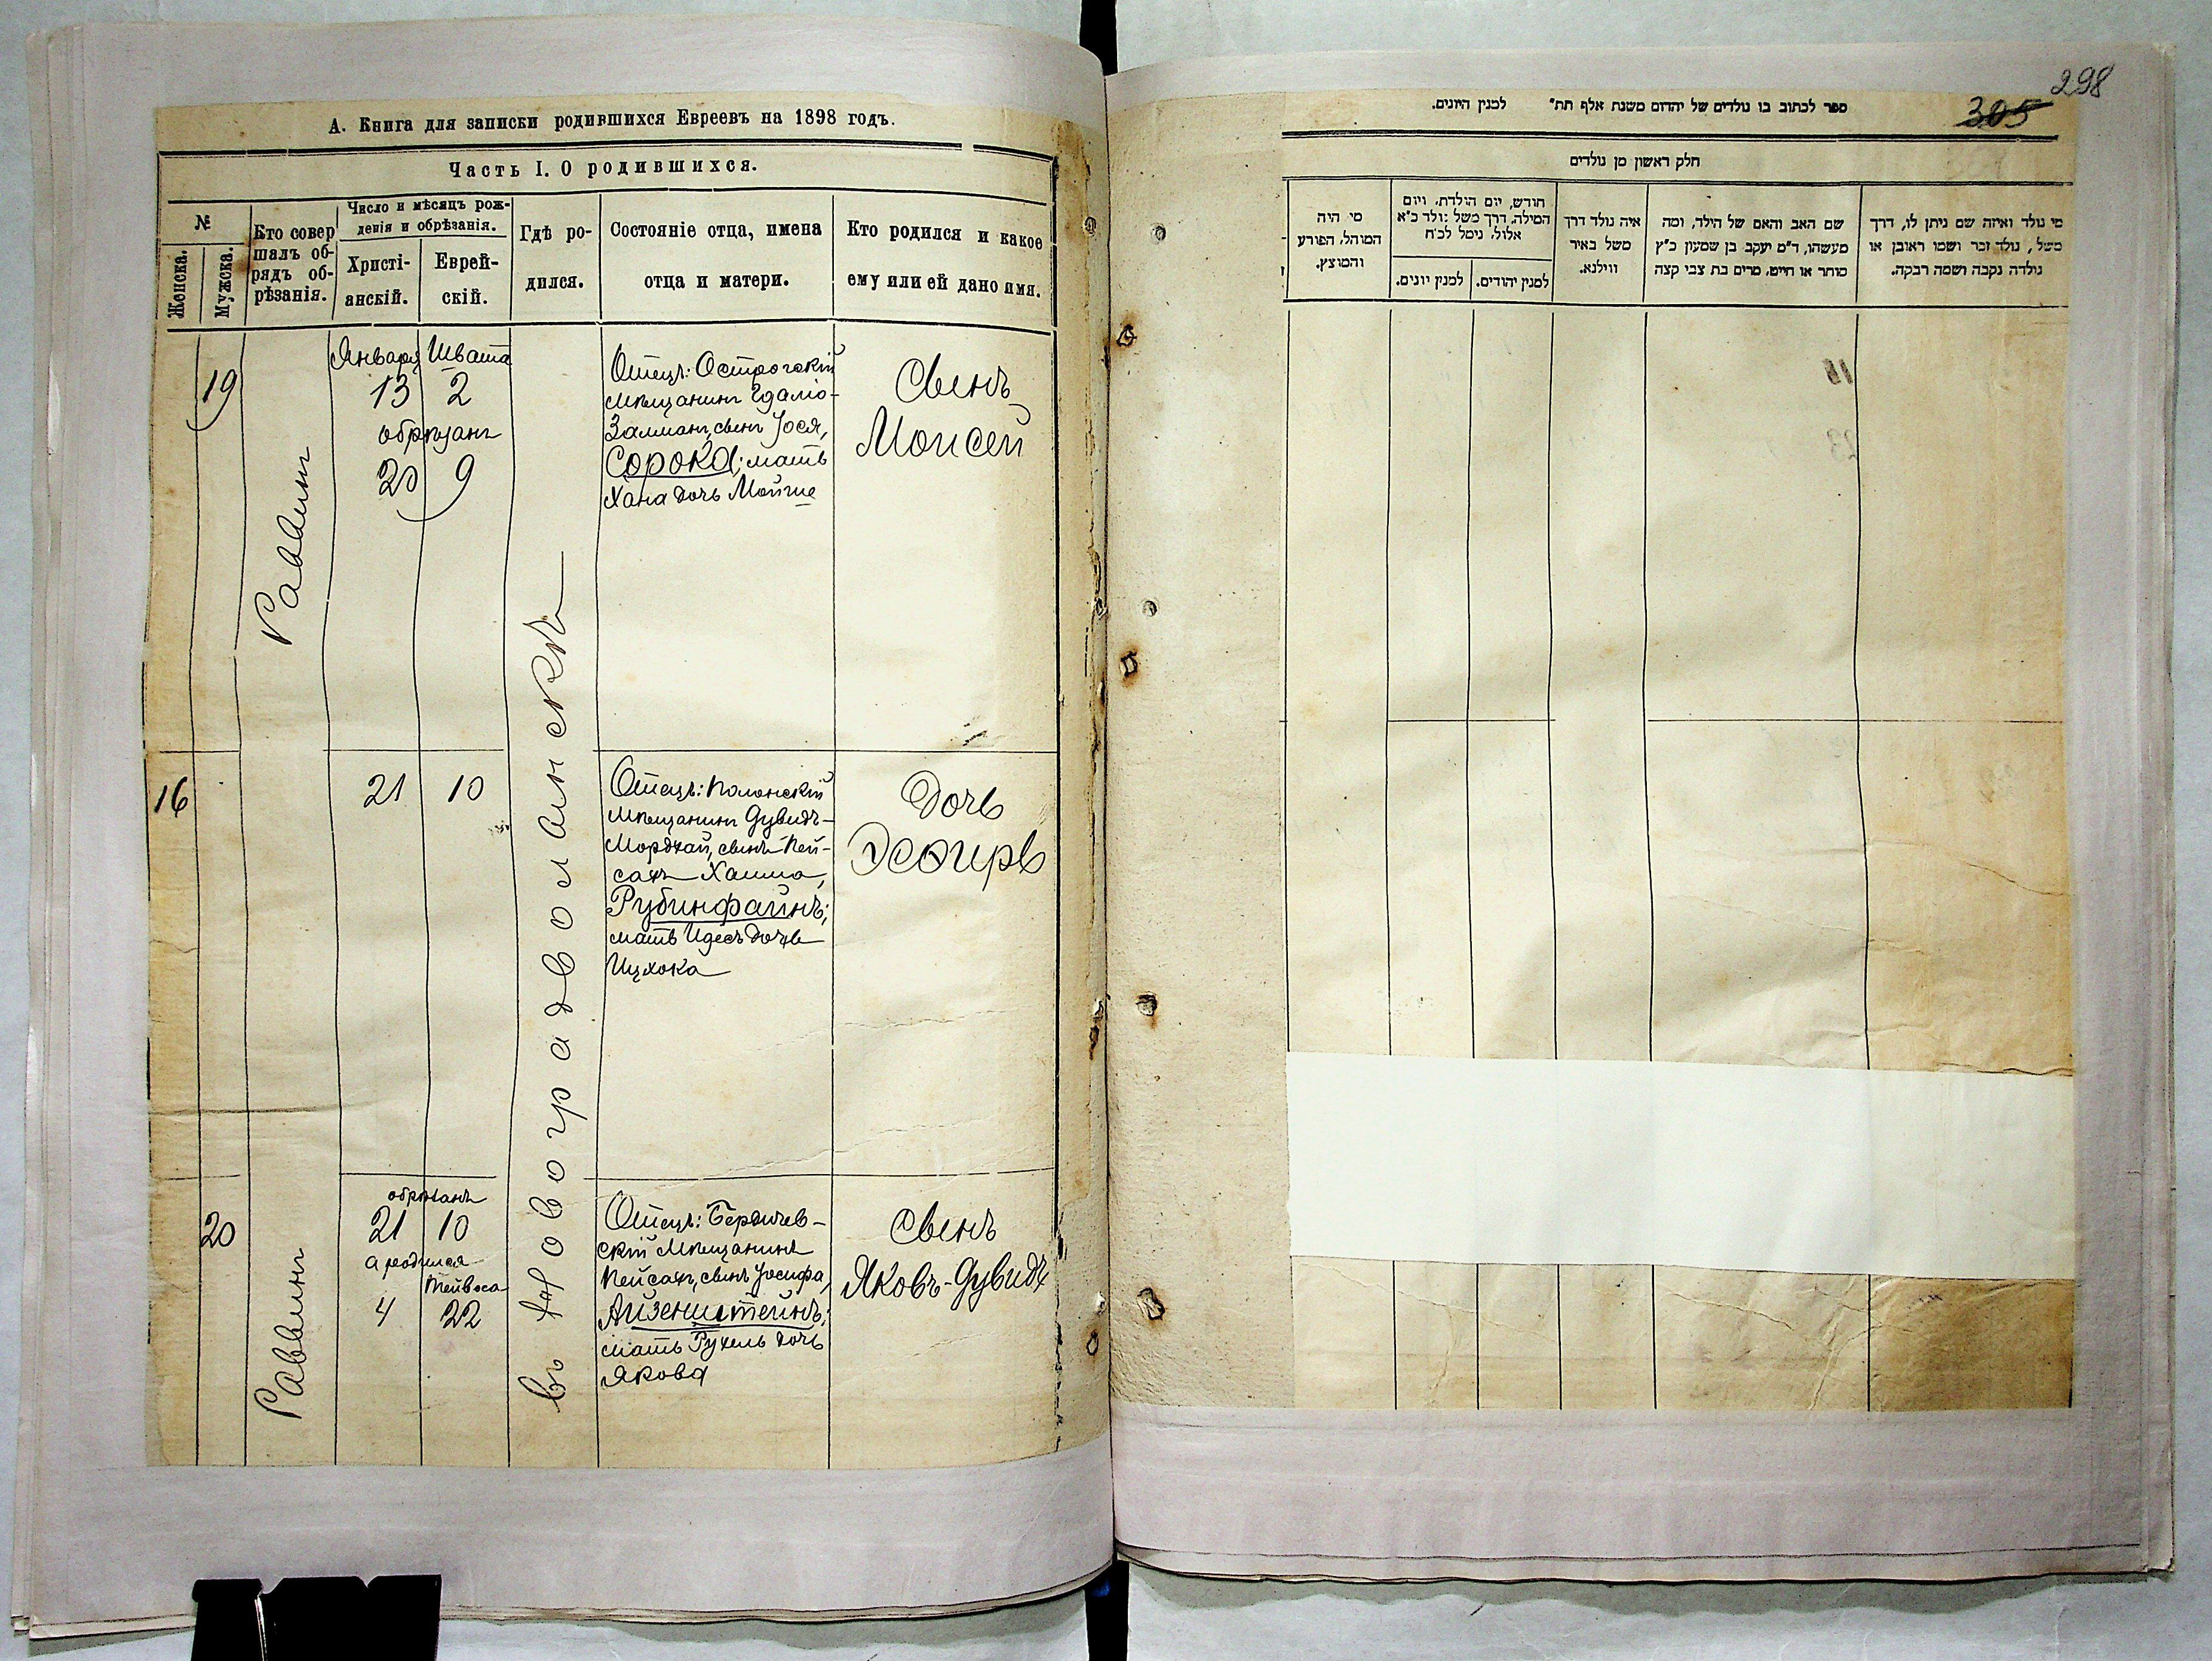 А. Книга для записки родившихся Евреевъ на 1898 годъ.
Часть I. О родившихся.
№
Женска.
Мужска.
Кто совер
шалъ об-
рядъ об-
рѣзанія.
Число и мѣсяцъ рож-
денія и обрѣзанія.
Христі-
анскій.
Еврей-
скій.
Гдѣ ро-
дился.
Состояніе отца, имена
отца и матери.
Кто родился и какое
ему или ей дано имя.
19
Раввинъ
Января Швата
13 2
обрѣзанъ
20 9
въ Новоградволынскѣ
Отецъ: Острогскій
мѣщанинъ Гдаліо-
Залманъ, сынъ Іося,
Сорока; мать
Хана дочь Мойше
Сынъ
Моисей
16
21 10
Отецъ: Полонскій
мѣщанинъ Дувидъ-
Мордхай, сынъ Пей-
сахъ Хаима,
Рубинфайнъ;
мать Идесъ дочь
Ицхока
Дочь
Эсѳирь
20
Раввинъ
обрѣзанъ
21 10
а родился
Тейвеса
4 22
Отецъ: Бердичев-
скій мѣщанинъ
Пейсахъ, сынъ Іосифа,
Айзенштейнъ;
мать Рухель дочь
Якова
Сынъ
Яковъ-Дувидъ
298
305
ספר לכתוב בו נולדים של יהדום משנת אלף תת״ למנין היונים.
חלק ראשון מן נולדים
מי נולד ואיזה שם ניתן לו, דרך
משל, נולד זכר ושמו ראובן או
נולדה נקבה ושמה רבקה.
שם האב והאם של הילד, ומה
מעשהו, ד״מ יעקב בן שמעון כ״ץ
סוחר או חייט, מרים בת צבי קצה
איה נולד דרך
משל באיר
ווילנא.
חודש, יום הולדת, ויום
המילה, דרך משל נולד כ״א
אלול, נימל לכ״ח
למנין יהודים.
למנין יונים.
מי היה
המוהל, הפורע
והמוצץ.